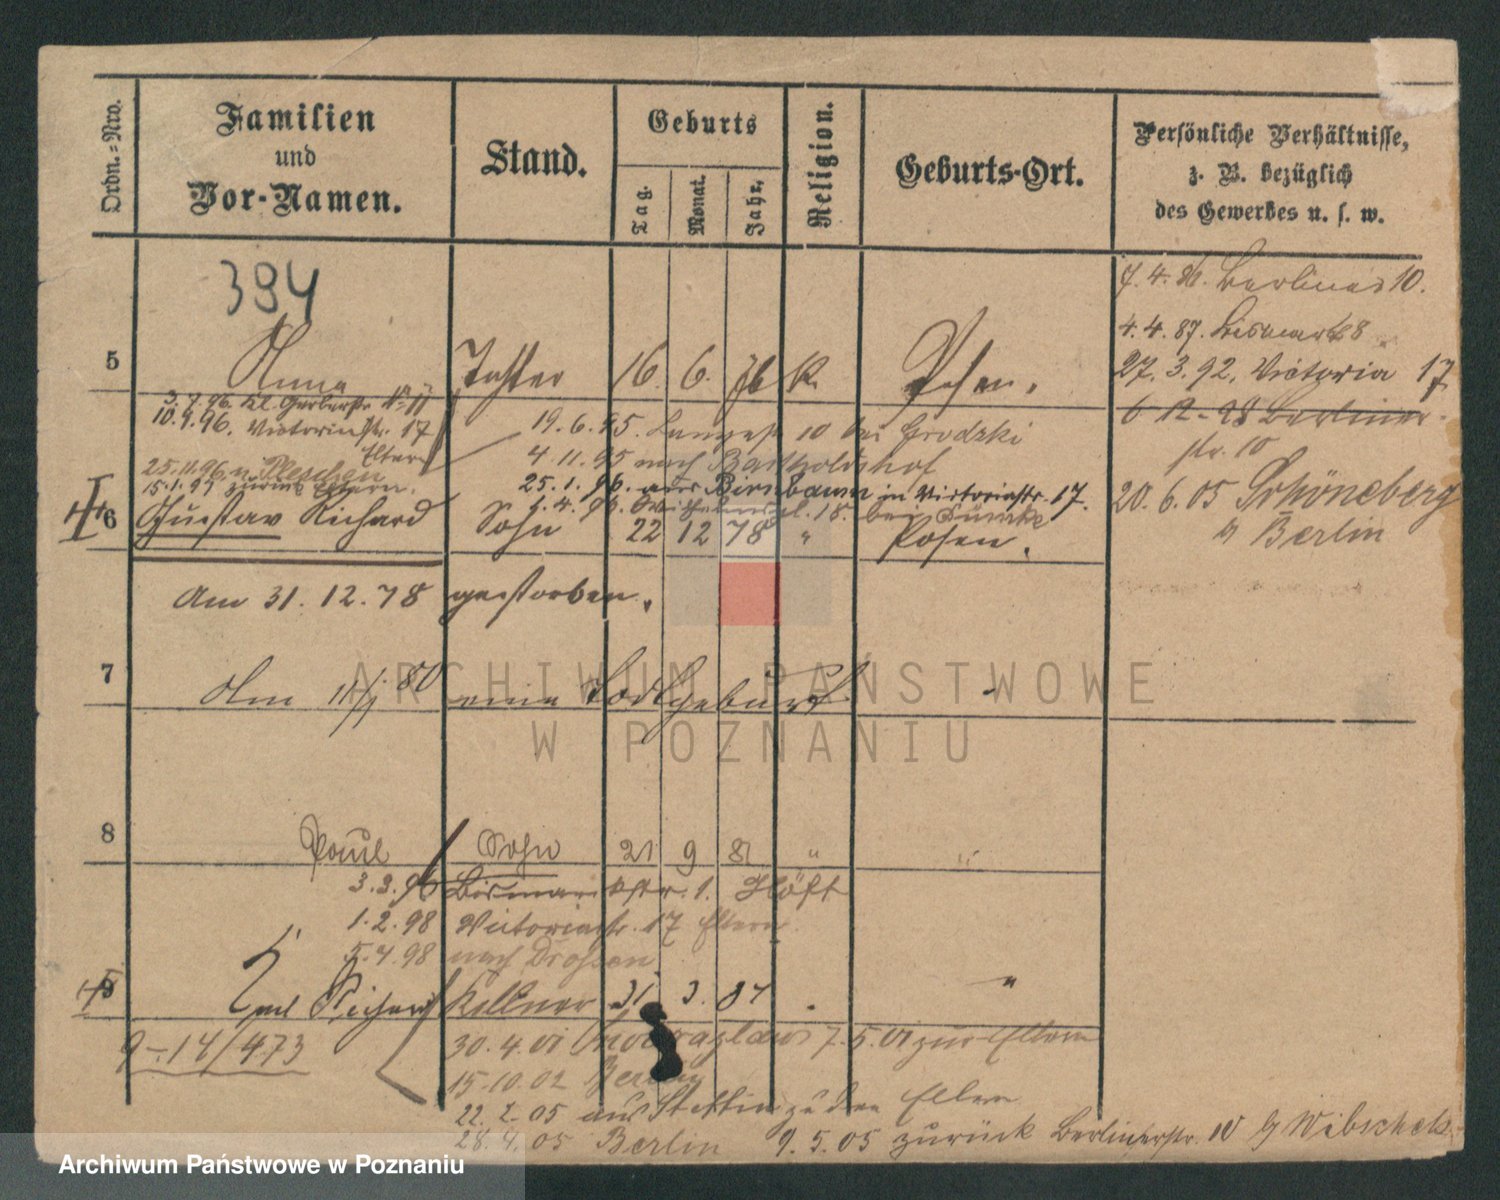 Ordn.-Nro.
Familien
und
Vor-Namen.
Stand.
Geburts
Tag.
Monat.
Jahr.
Religion.
Geburts-Ort.
Persönliche Verhältnisse,
z. B. bezüglich
des Gewerbes u. s. w.
394
7.4.86. Berliner 10.
4.4.87. Bismark 8
27.3.92. Victoria 17
5 Anna Tochter 16. 6. 76 k. Posen.
3.7.96. Kl. Gerberstr. No 11
10.9.96. Victoriastr. 17
Eltern
25.11.96 n. Pleschen
15.1.97 zurück Eltern.
19.6.95. Langestr 10 bei Grodzki
4.11.95 nach Bartholdshof
25.1.96. aus Birnbaum in Victoriastr. 17.
1.4.96. Wilhelmspl. 18. bei
6 12 - 98 Berliner-
str. 10
20.6.05 Schöneberg
b Berlin
6 Gustav Richard Sohn 22 12 78 " Posen.
Am 31.12.78 gestorben.
7 Am 11/1 80 eine Todtgeburt.
ARCHIWUM PAŃSTWOWE
W POZNANIU
8 Paul Sohn 21 9 81 " "
3.3.96 Bismarckstr. 1. Höft
1.2.98 Victoriastr. 17 Eltern.
5.4.98 nach Drossen
9 Emil Richard Kellner 31 3. 84 "
9-14/473
30.4.01 Inowrazlaw 7.5.01 zur Eltern
15.10.02 Berlin
22.2.05 aus Stettin zu den Eltern
28.4.05 Berlin 9.5.05 zurück Berlinerstr. 10 b Wibschek
Archiwum Państwowe w Poznaniu